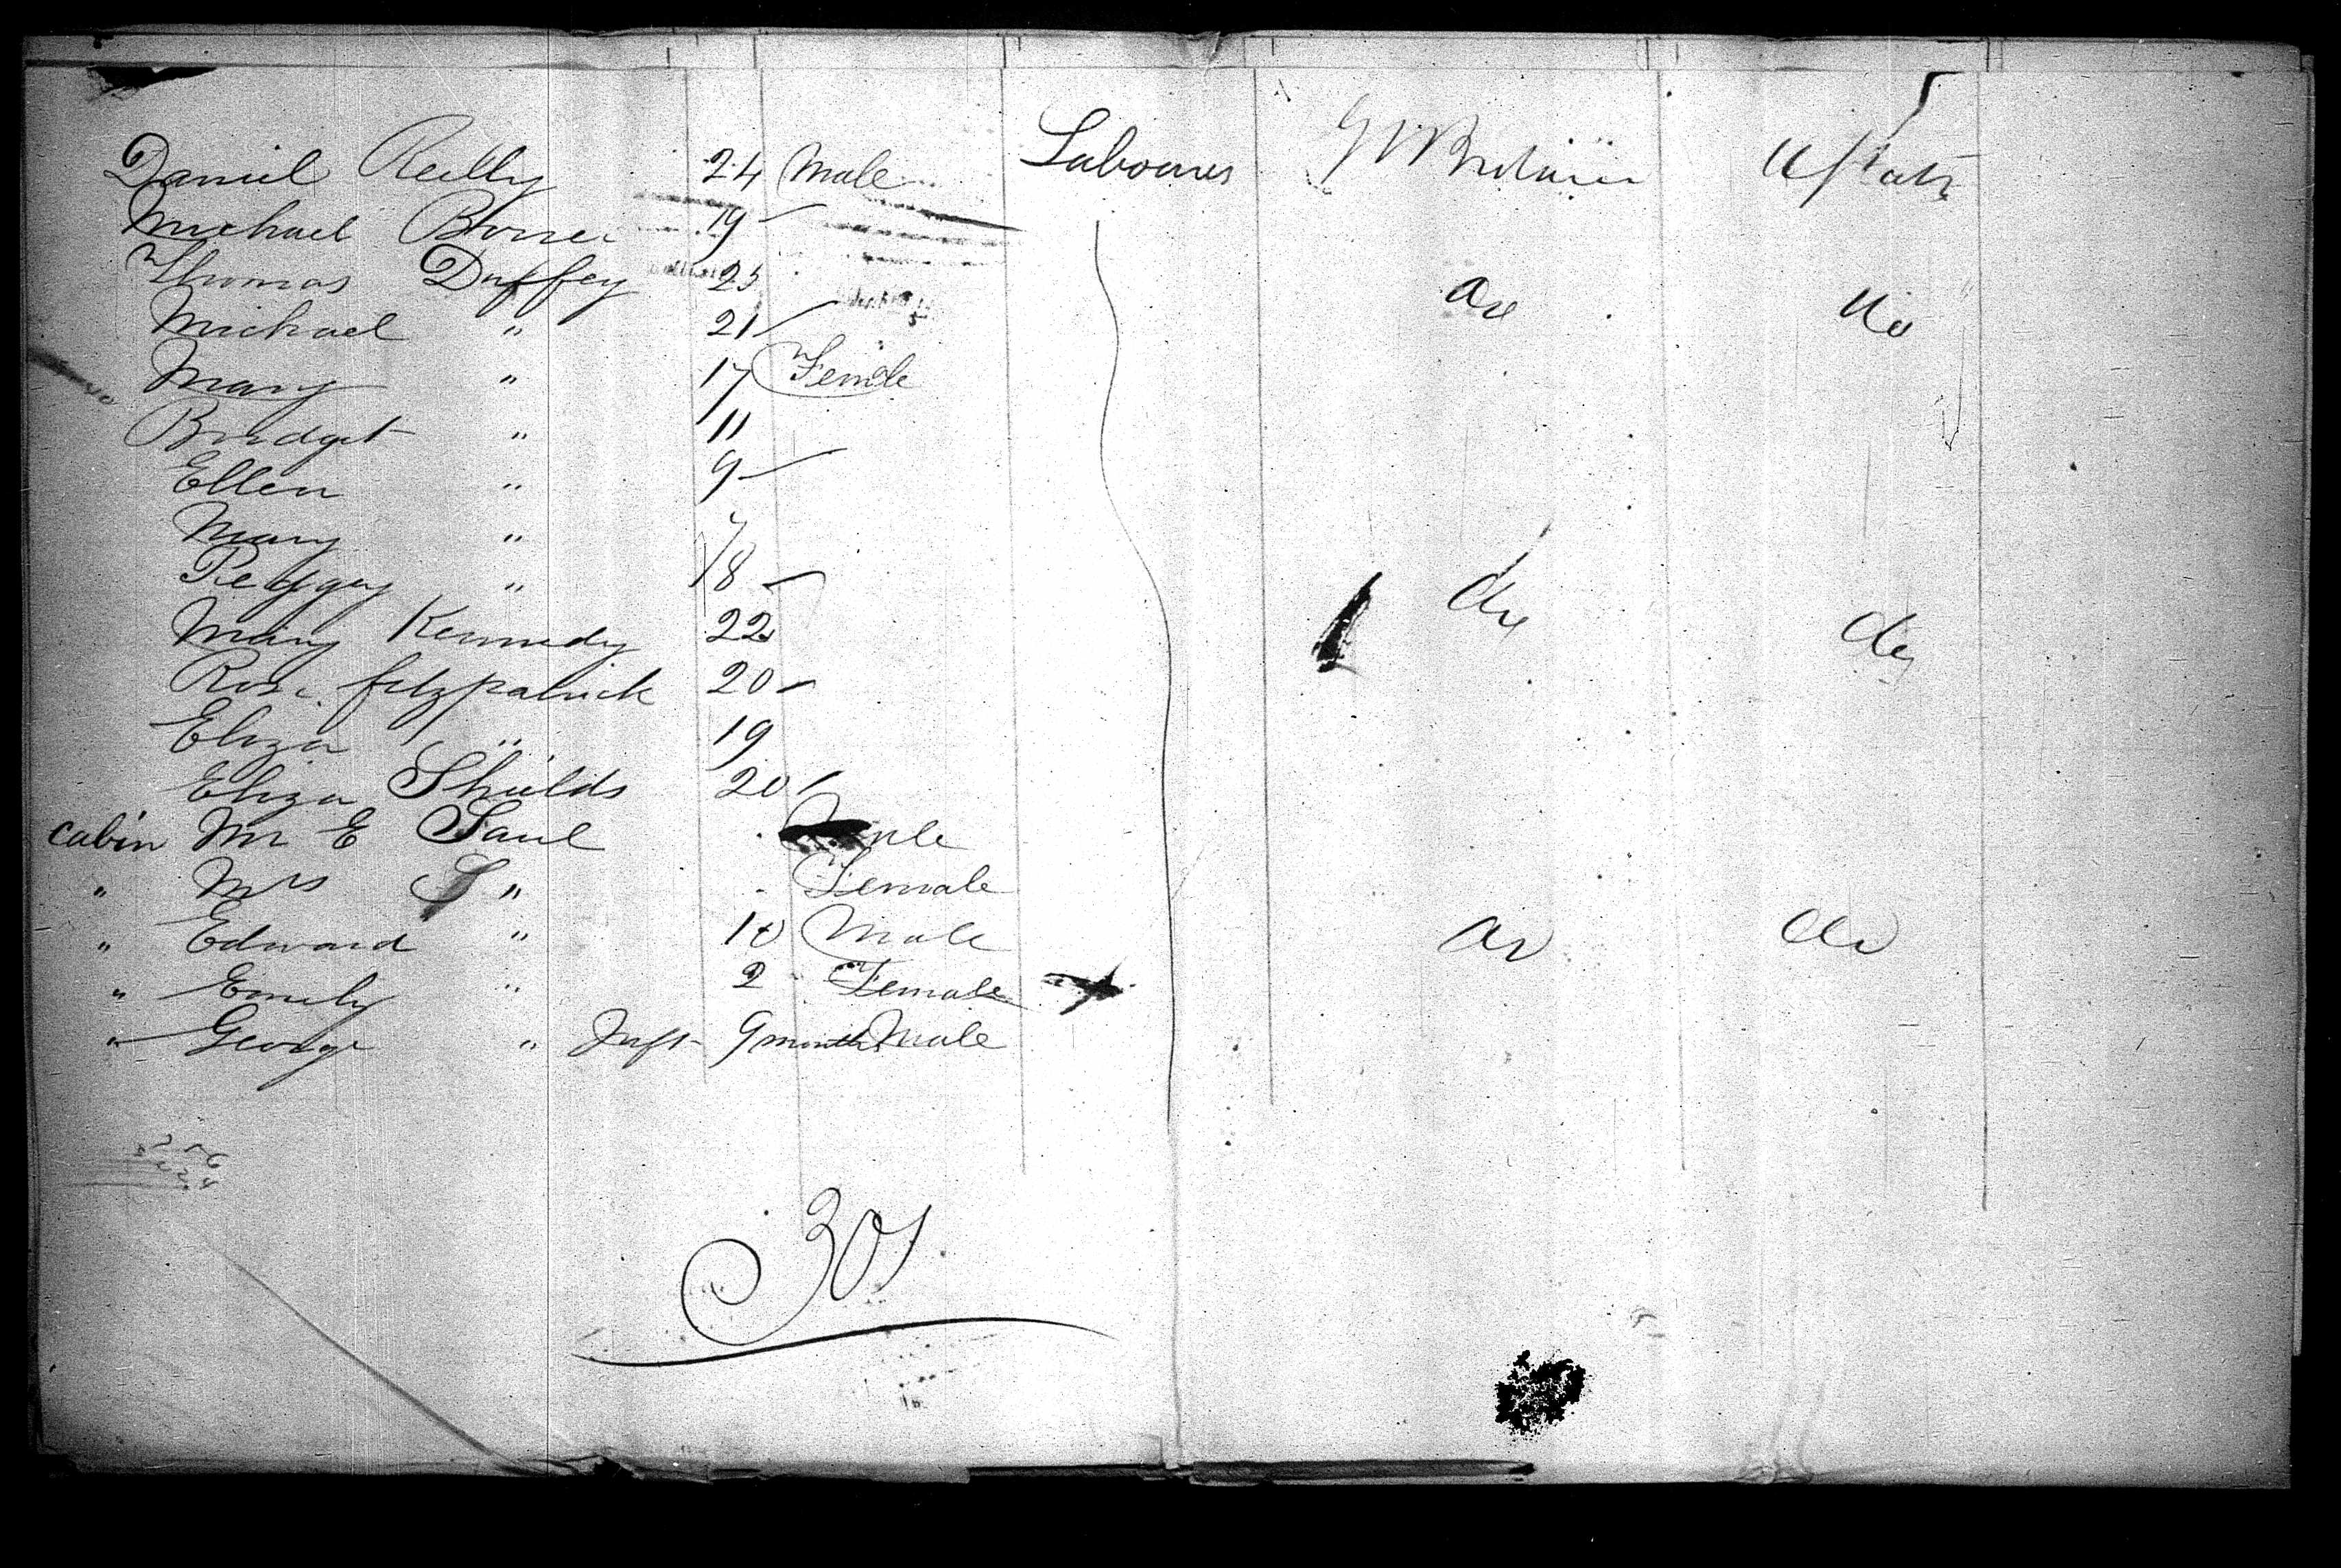 Daniel Reilly 24 Male Labourers G Britain U States
Michael 19
Thomas Duffey 25 do do
Michael " 21
Mary " 17 Female
Bridget " 11
Ellen " 9
Mary "
Peggy " 18 do do
Mary Kennedy 22
Rose fitzpatrick 20
Eliza " 19
Eliza Shields 20
cabin Mr E Saul Male
" Mrs S " Female
" Edward " 10 Male do do
" Emily " 2 Female
" George " Inft 9 months Male
301